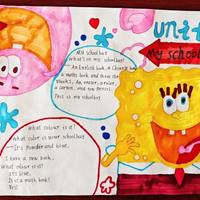 unit
My school
My schoolbag
What's in my schoolbag?
An English book, a Chinese book,
a math book and three storybooks,
An eraser, a ruler,
a crayon, and two pencils,
This is my schoolbag.
What colour is it?
What color is your schoolbag?
---It's purple and blue.
I have a new book.
What colour is it?
It's blue.
Is it a math book?
Yes!